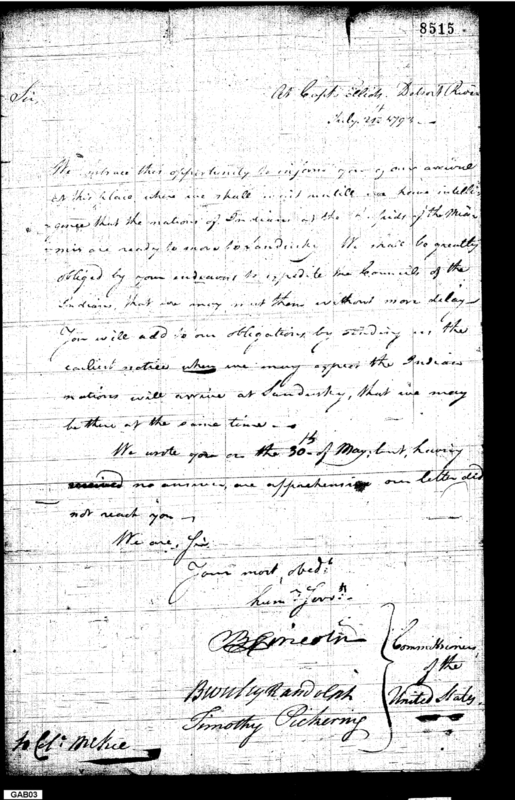 8515
At Capt. Elliots, Detroit River
July 21st 1793.
Sir,
We embrace this opportunity to inform you of our arrival
at this place where we shall wait untill we have intelli
gence that the nations of Indians at the Rapids of the Miam
mis are ready to move to Sandusky. We shall be greatly
obliged by your endeavors to expedite the Councils of the
Indians, that we may meet them without more delay
You will add to our obligations by sending us the
earliest notice when we may expect the Indian
nations will arrive at Sandusky, that we may
be there at the same time.
We wrote you on the 30th of May; but, having
received no answer, are apprehensive our letter did
not reach you
We are, Sir
Your most, obedt
humr Servts
B Lincoln
Beverley Randolph
Timothy Pickering
Commissioners
of the
United States.
to Col. McKee
GAB03